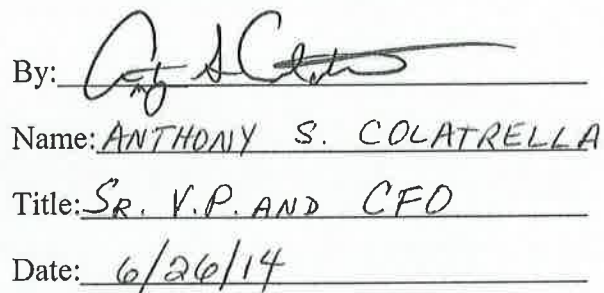 By:
Name: ANTHONY S. COLATRELLA
Title: SR. V.P. AND CFO
Date: 6/26/14